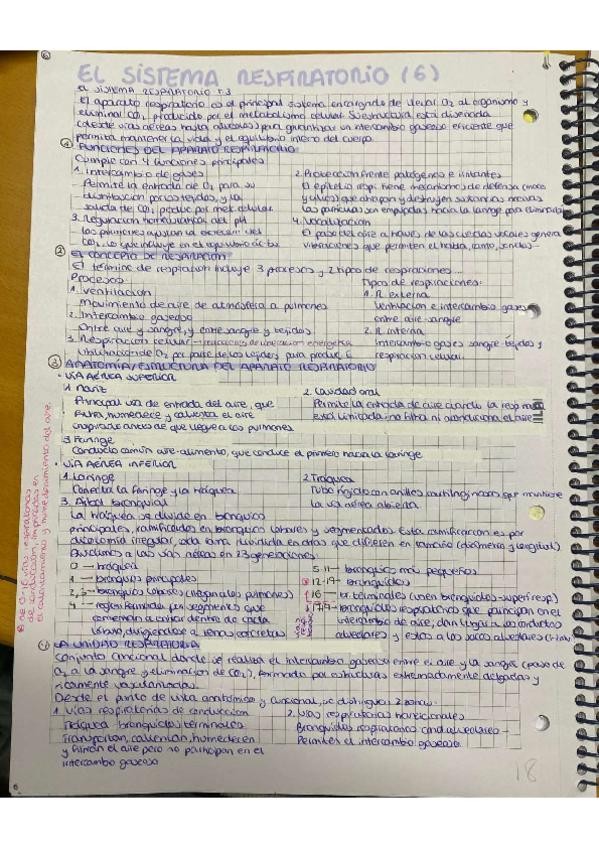 EL SISTEMA RESPIRATORIO (6)
EL SISTEMA RESPIRATORIO T.3
El aparato respiratorio es el principal sistema encargado de llevar O2 al organismo y
eliminar CO2 producido por metabolismo celular. Su estructura está diseñada
(desde vías aéreas hasta alveolos) para garantizar un intercambio gaseoso eficiente que
permita mantener la vida y el equilibrio interno del cuerpo.
1 FUNCIONES DEL APARATO RESPIRATORIO
Cumple con 4 funciones principales
1. Intercambio de gases
Permite la entrada de O2 para su
distribución por los tejidos, y la
salida de CO2 produc por met. celular
2. Protección frente patógenos e irritantes
El epitelio resp. tiene mecanismos de defensa (moco
y cilios) que atrapan y destruyen sustancias nocivas
Las partículas son empujadas hacia la faringe para eliminarlas
3. Regulación homeostática del pH
Los pulmones ajustan la excreción del
CO2, lo que influye en el equilibrio
4. Vocalización
El paso del aire a través de las cuerdas vocales genera
vibraciones que permiten el habla, canto,
2 EL CONCEPTO DE RESPIRACIÓN
El término de respiración incluye 3 procesos y 2 tipos de respiraciones...
Procesos:
1. Ventilación
Movimiento de aire de atmósfera a pulmones
2. Intercambio gaseoso
Entre aire y sangre, y entre sangre y tejidos
3. Respiración celular
Utilización de O2 por parte de los tejidos para produc E
Tipos de respiraciones:
1. R. externa
Ventilación e intercambio gases
entre aire-sangre
2. R. interna
Intercambio gases sangre-tejidos y
respiración celular.
3 ANATOMÍA/ESTRUCTURA DEL APARATO RESPIRATORIO
· VÍA AÉREA SUPERIOR
1. Nariz
Principal vía de entrada del aire, que
filtra, humedece y calienta el aire
inspirado antes de que llegue a los pulmones
2. Cavidad oral
Permite la entrada de aire cuando la resp nasal
está limitada - no filtra ni acondiciona el aire
3. Faringe
Conducto común aire-alimento, que conduce el primero hacia la laringe
· VÍA AÉREA INFERIOR
1. Laringe
Conecta la faringe y la tráquea
2. Tráquea
Tubo rígido con anillos cartilaginosos que mantiene
la vía aérea abierta
3. Árbol bronquial
La tráquea se divide en bronquios
principales, ramificados en bronquios lobares y segmentados. Esta ramificación es por
dicotomía irregular, cada rama dividida en otras que difieren en tamaño (diámetro y longitud).
Dividimos a las vías aéreas en 23 generaciones:
0 — tráquea
1 — bronquios principales
2, 3 — bronquios lobares
4 — región formada por segmentos que
comienzan a entrar dentro de cada
lóbulo, dirigiéndose a zonas concretas
5-11 — bronquios más pequeños
12-19 — bronquiolos
16 — br. terminales
17-19 — bronquiolos respiratorios que participan en el
intercambio de aire, dan lugar a los conductos
alveolares y estos a los sacos alveolares
de 0-16 vías respiratorias
de conducción, implicadas en
el calentamiento y humedecimiento del aire
4 LA UNIDAD RESPIRATORIA
Conjunto funcional donde se realiza el intercambio gaseoso entre el aire y la sangre (paso de
O2 a la sangre y eliminación de CO2), formada por estructuras extremadamente delgadas y
ricamente vascularizadas.
Desde el punto de vista anatómico y funcional, se distinguen 2 zonas:
1. Vías respiratorias de conducción
Tráquea - bronquiolos terminales
Transportan, calientan, humedecen
y filtran el aire pero no participan en el
intercambio gaseoso
2. Vías respiratorias funcionales
Bronquiolos respiratorios
Permiten el intercambio gaseoso
18